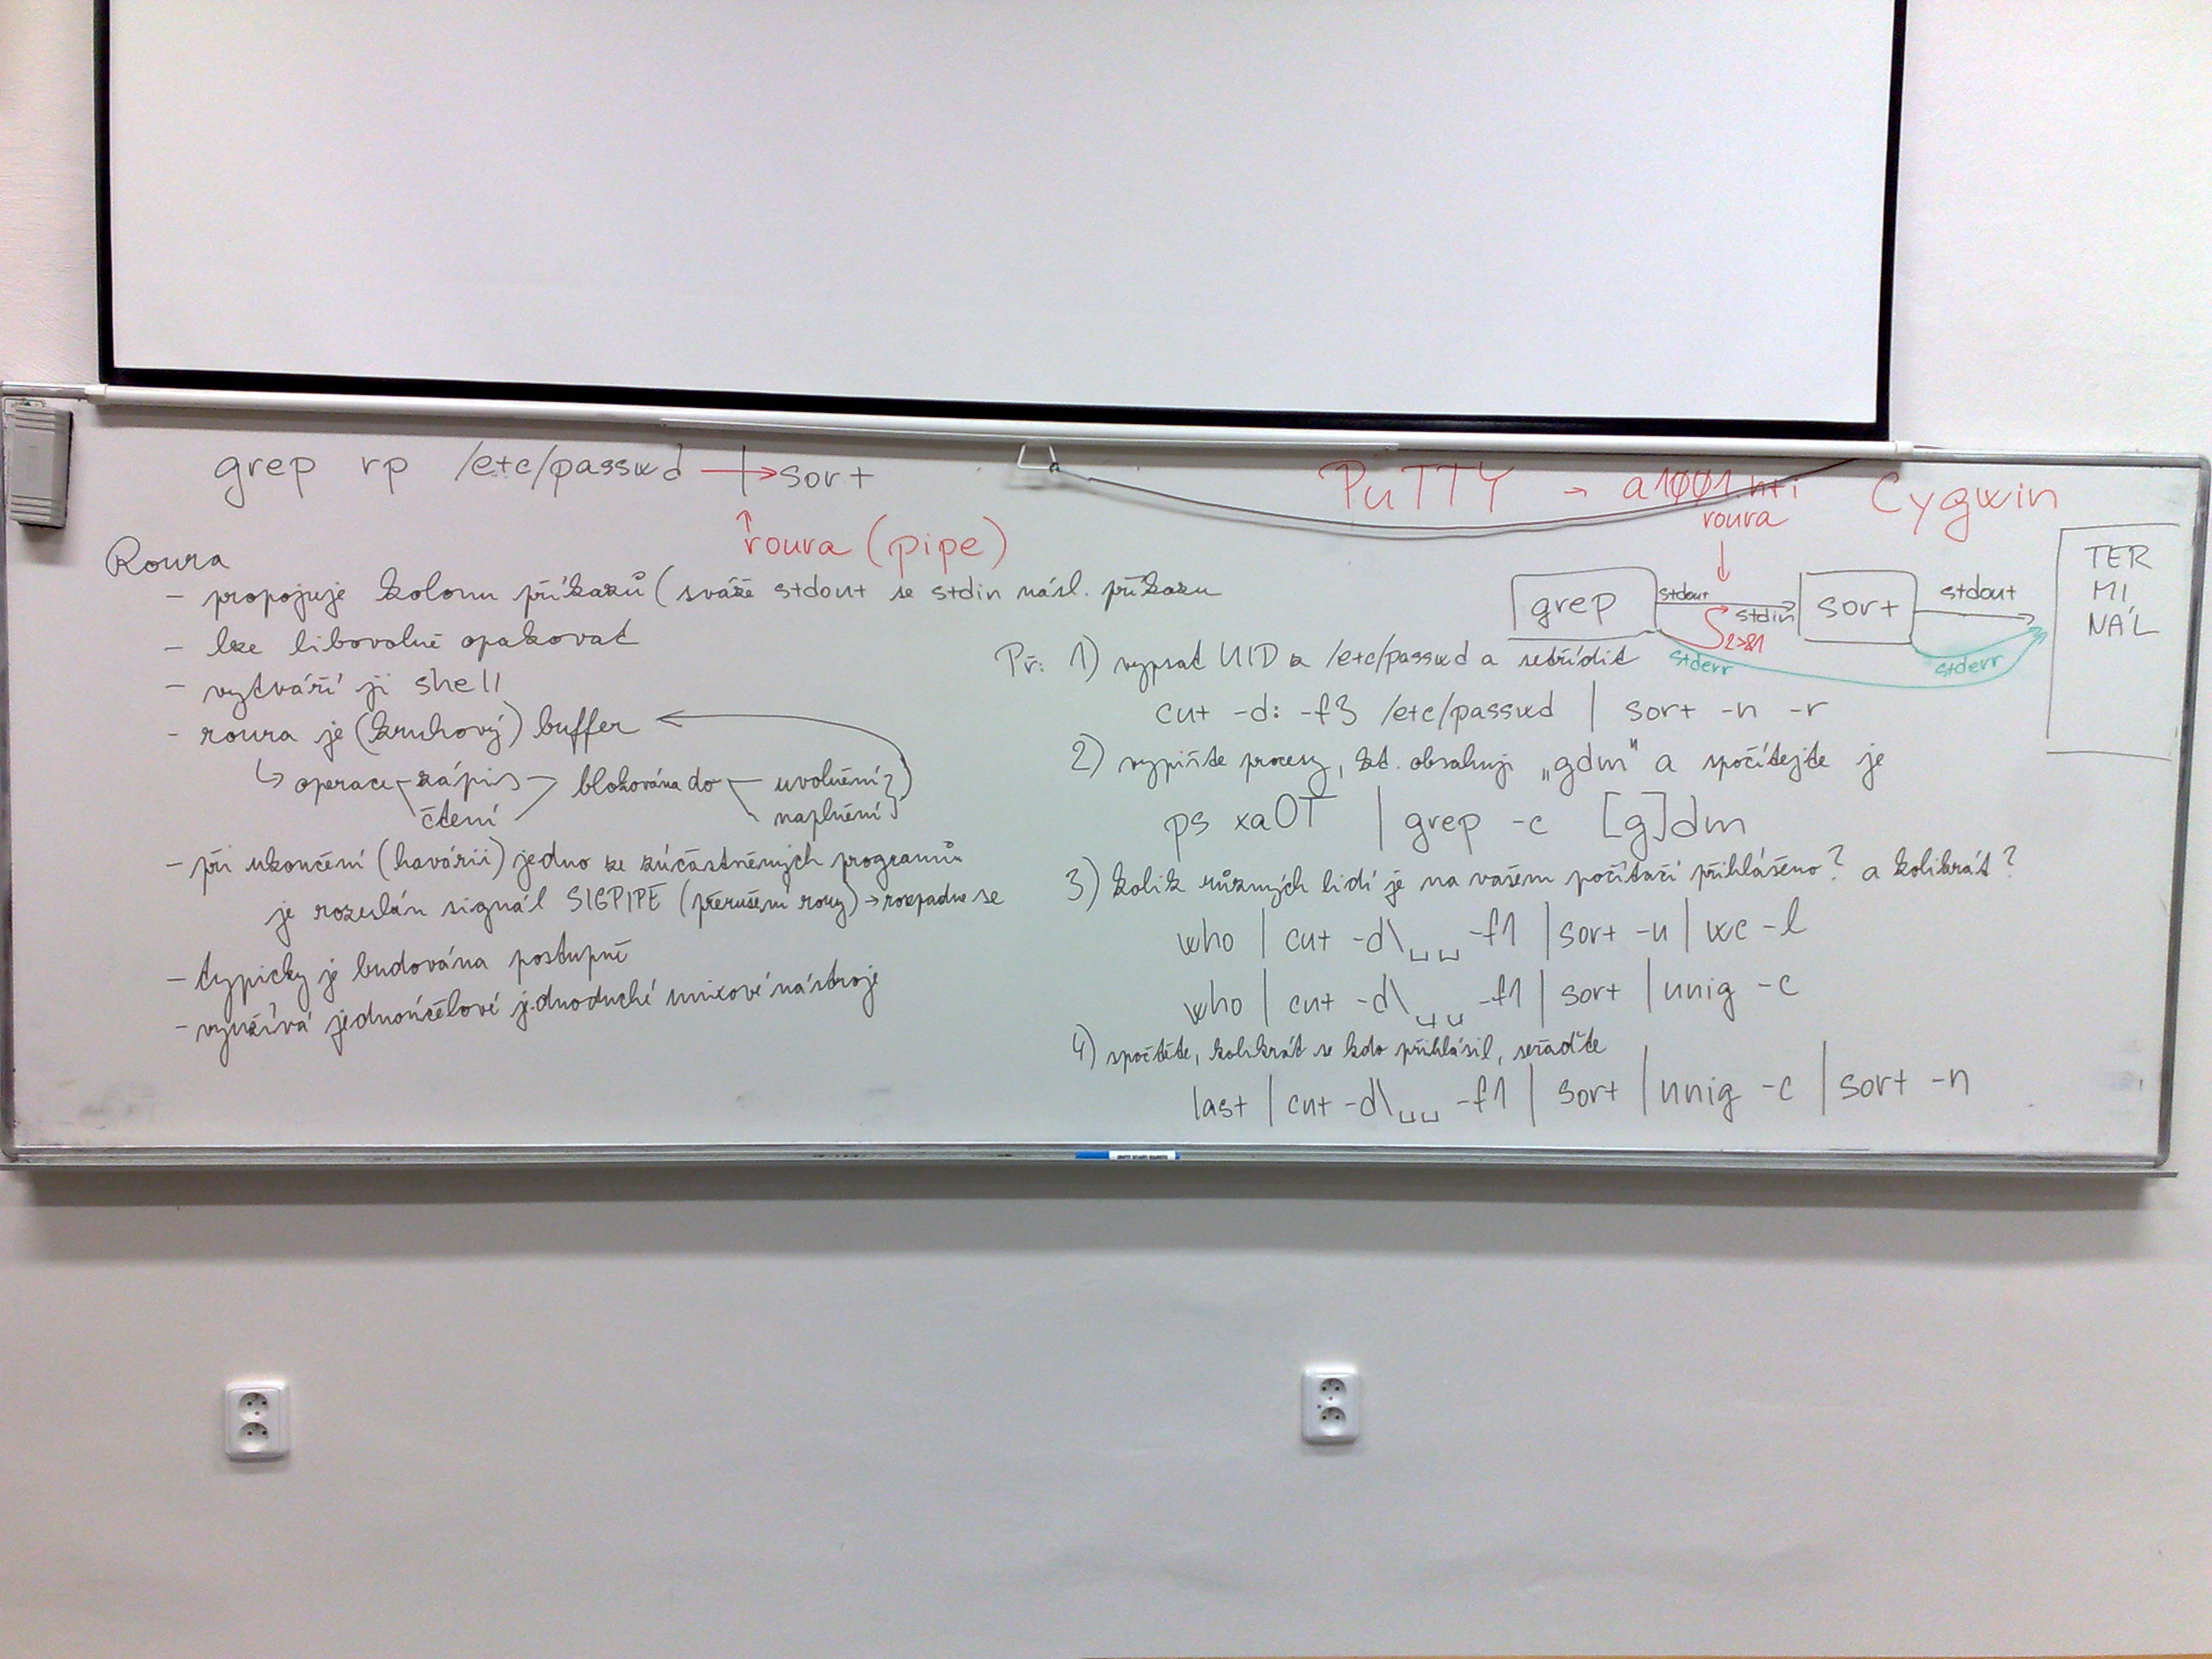 grep rp /etc/passwd | → sort
↑ roura (pipe)
Roura
- propojuje kolonu příkazů (sváže stdout se stdin násl. příkazu
- lze libovolně opakovat
- vytváří ji shell
- roura je (kruhový) buffer
↳ operace zápis čtení blokována do uvolnění naplnění
- při ukončení (havárii) jedno ze zúčastněných programům
je rozeslán signál SIGPIPE (přerušení roury) → rozpadne se
- typicky je budována postupně
- využívá jednoúčelové jednoduché unixové nástroje
PuTTY → a1001.nti Cygwin
roura
grep stdout stdin sort stdout
2>&1
stderr stderr
TER
MI
NÁL
Př: 1) vypsat UID z /etc/passwd a setřídit
cut -d: -f3 /etc/passwd | sort -n -r
2) vypište procesy, kt. obsahují „gdm" a spočítejte je
ps xaOT | grep -c [g]dm
3) kolik různých lidí je na vašem počítači přihlášeno? a kolikrát?
who | cut -d\␣␣ -f1 | sort -u | wc -l
who | cut -d\␣␣ -f1 | sort | uniq -c
4) spočtěte, kolikrát se kdo přihlásil, seřaďte
last | cut -d\␣␣ -f1 | sort | uniq -c | sort -n